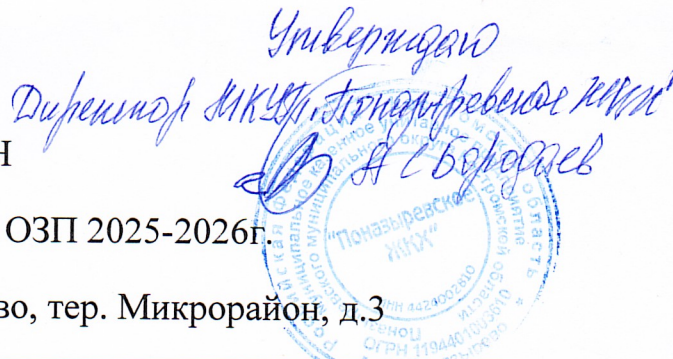 Утверждаю
Директор МКУП "Поназыревское ЖКХ"
А С Бородаев
Н
ОЗП 2025-2026г.
во, тер. Микрорайон, д.3
"Поназыревское
ЖКХ"
ОГРН 1194401003610